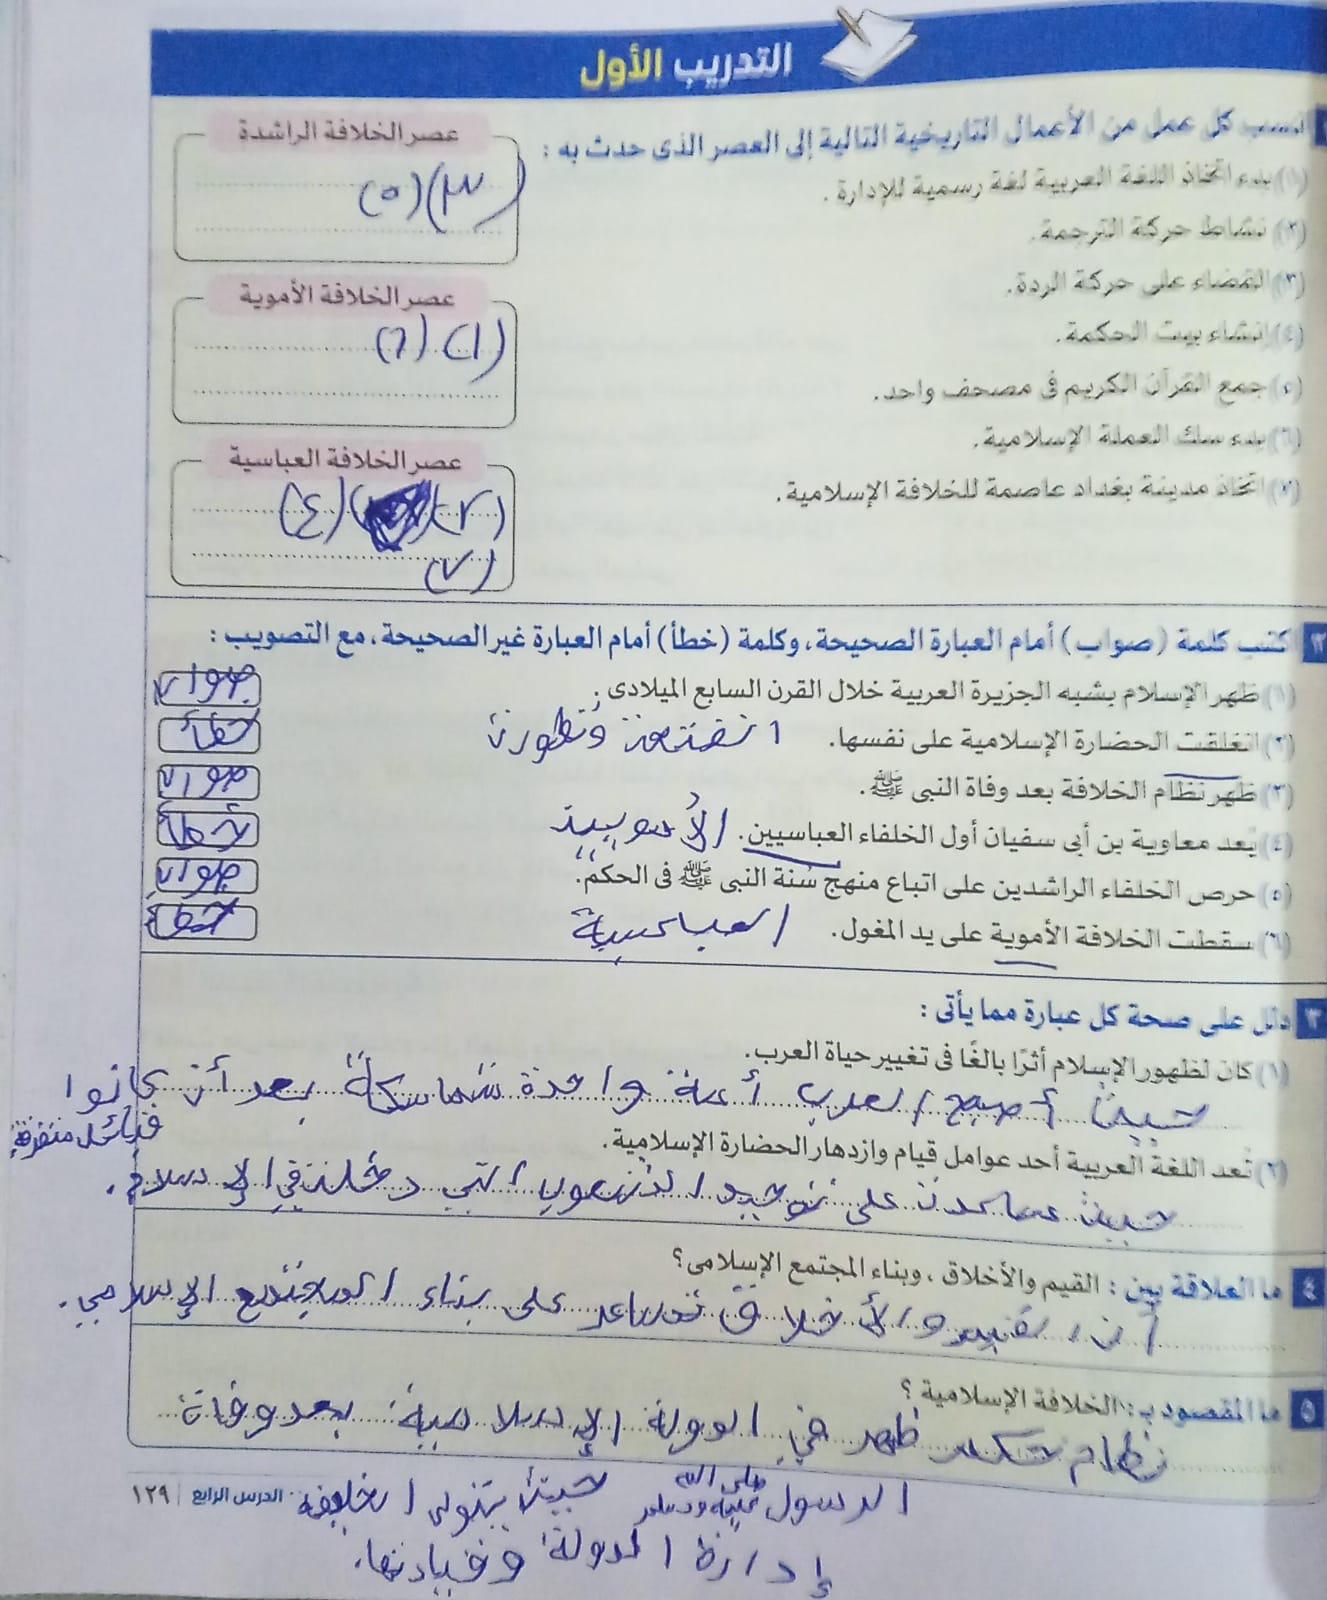 التدريب الأول
انسب كل عمل من الأعمال التاريخية التالية إلى العصر الذى حدث به :
(١) بدء اتخاذ اللغة العربية لغة رسمية للإدارة .
(٢) نشاط حركة الترجمة.
(٣) القضاء على حركة الردة.
(٤) إنشاء بيت الحكمة.
(٥) جمع القرآن الكريم فى مصحف واحد.
(٦) بدء سك العملة الإسلامية.
(٧) اتخاذ مدينة بغداد عاصمة للخلافة الإسلامية.
عصر الخلافة الراشدة
(٣) (٥)
عصر الخلافة الأموية
(١) (٦)
عصر الخلافة العباسية
(٢) (٤)
(٧)
٢ اكتب كلمة (صواب) أمام العبارة الصحيحة، وكلمة (خطأ) أمام العبارة غير الصحيحة، مع التصويب :
(١) ظهر الإسلام بشبه الجزيرة العربية خلال القرن السابع الميلادى. صواب
(٢) انغلقت الحضارة الإسلامية على نفسها. انفتحت وتطورت خطأ
(٣) ظهر نظام الخلافة بعد وفاة النبى ﷺ. صواب
(٤) يُعد معاوية بن أبى سفيان أول الخلفاء العباسيين. الأمويين خطأ
(٥) حرص الخلفاء الراشدين على اتباع منهج سُنة النبى ﷺ فى الحكم. صواب
(٦) سقطت الخلافة الأموية على يد المغول. العباسية خطأ
٣ دلل على صحة كل عبارة مما يأتى :
(١) كان لظهور الإسلام أثرًا بالغًا فى تغيير حياة العرب.
حيث أصبح العرب أمة واحدة متماسكة بعد أن كانوا
قبائل متفرقة
(٢) تُعد اللغة العربية أحد عوامل قيام وازدهار الحضارة الإسلامية.
حيث ساعدت على توحيد الشعوب التي دخلت في الإسلام.
٤ ما العلاقة بين : القيم والأخلاق ، وبناء المجتمع الإسلامى ؟
أن القيم والأخلاق تساعد على بناء المجتمع الإسلامي.
٥ ما المقصود بـ : الخلافة الإسلامية ؟
نظام حكم ظهر في الدولة الإسلامية بعد وفاة
الرسول صلى الله عليه وسلم حيث يتولى الخليفة
إدارة الدولة وقيادتها.
الدرس الرابع ١٢٩